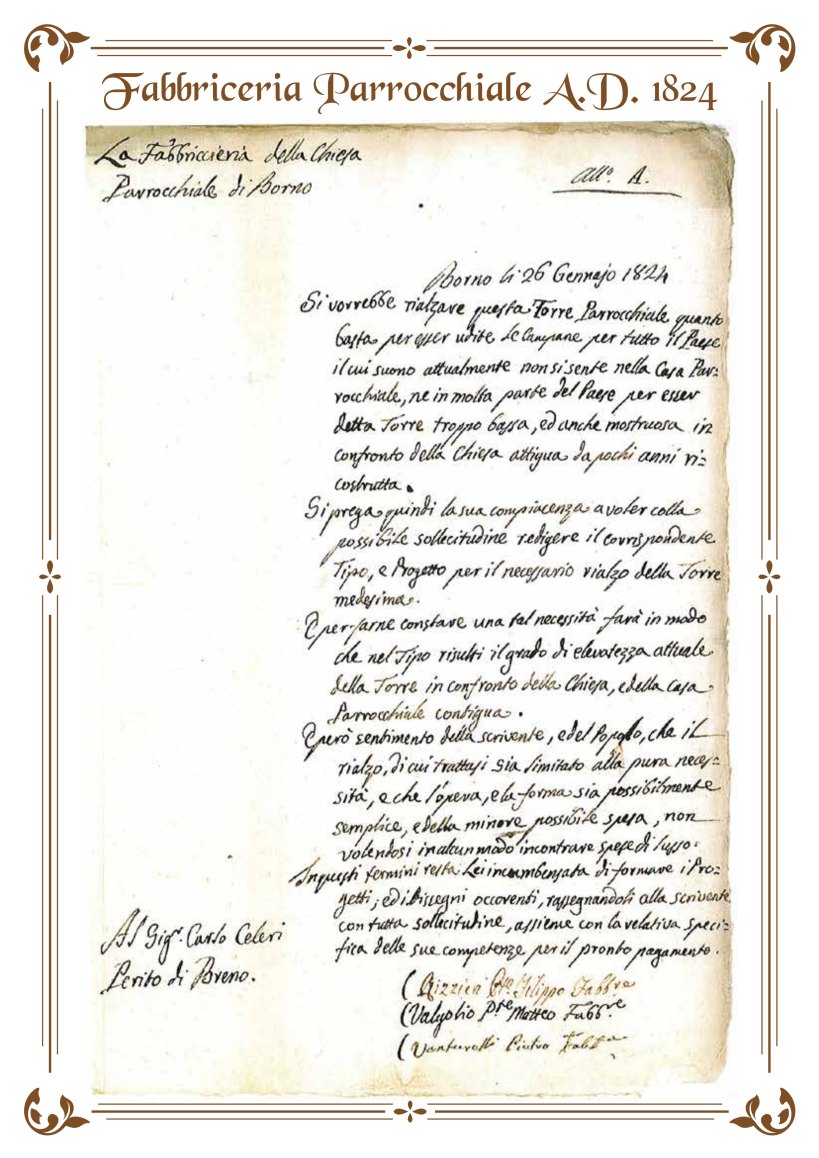 Fabbriceria Parrocchiale A.D. 1824
La Fabbricieria della Chiesa
Parrocchiale di Borno
All.º A.
Borno li 26 Gennajo 1824
Si vorrebbe rialzare questa Torre Parrocchiale quanto
basta per esser udite le Campane per tutto il Paese
il cui suono attualmente non si sente nella Casa Par=
rocchiale, ne in molta parte del Paese per esser
detta Torre troppo bassa, ed anche mostruosa in
confronto della Chiesa attigua da pochi anni ri=
costrutta.
Si prega quindi la sua compiacenza a voler colla
possibile sollecitudine redigere il corrispondente
Tipo, e Progetto per il necessario rialzo della Torre
medesima.
E per farne constare una tal necessità farà in modo
che nel Tipo risulti il grado di elevatezza attuale
della Torre in confronto della Chiesa, e della Casa
Parrocchiale contigua.
E però sentimento della scrivente, e del Popolo, che il
rialzo, di cui trattasi sia limitato alla pura neces=
sità, e che l'opera, e la forma sia possibilmente
semplice, e della minore possibile spesa, non
volendosi in alcun modo incontrare spese di lusso.
In questi termini resta Lei incumbensata di formare i Pro=
getti, ed i Dissegni occorenti, rassegnandoli alla scrivente
con tutta sollecitudine, assieme con la relativa speci=
fica delle sue competenze per il pronto pagamento.
Al Sigr. Carlo Celeri
Perito di Breno.
( Rizzieri Pte Filippo Fabbre
( Valgolio Pte Matteo Fabbre
( Venturelli Pietro